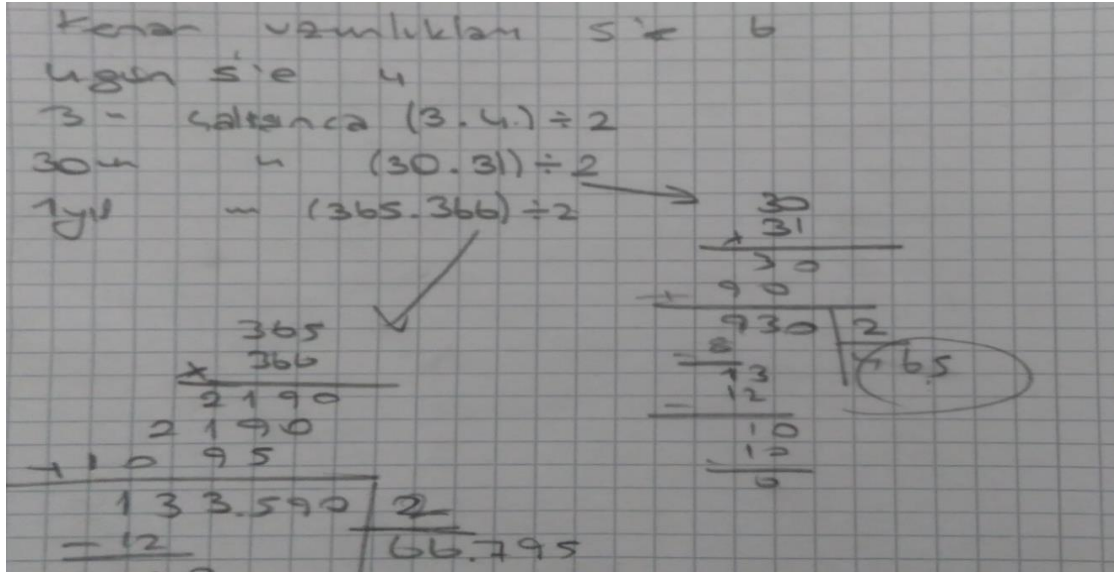 Kenar uzunlukları 6
4 gün 4
3 - (3.4.) ÷ 2
30 (30.31) ÷ 2
1 yıl (365.366) ÷ 2
30
x 31
30
+ 90
930 2
- 8 465
13
- 12
10
- 10
0
365
x 366
2190
2190
+ 1095
133.590 2
- 12 66.795